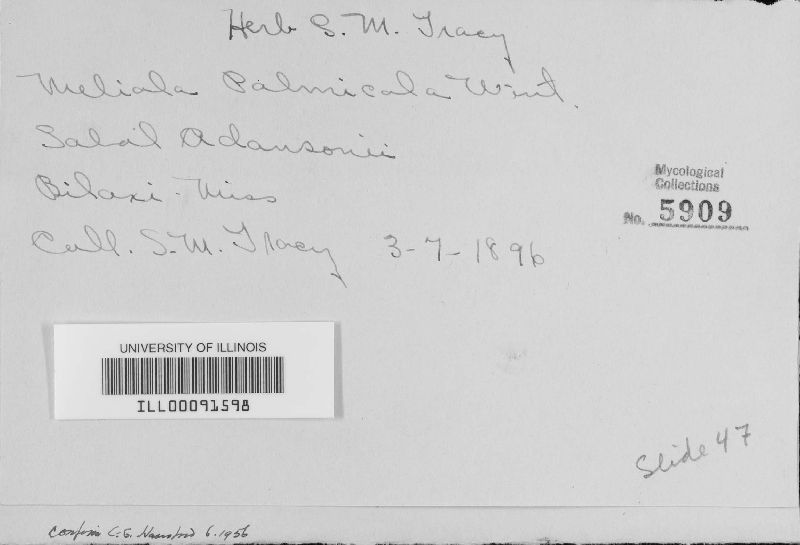 Herb S. M. Tracy
Meliola Palmicola Wint.
Sabal Adansonii
Biloxi - Miss
Coll. S. M. Tracy 3-7-1896
Mycological
Collections
No. 5909
UNIVERSITY OF ILLINOIS
ILL00091598
Slide 47
Confirm C. G. Hansford 6.1956